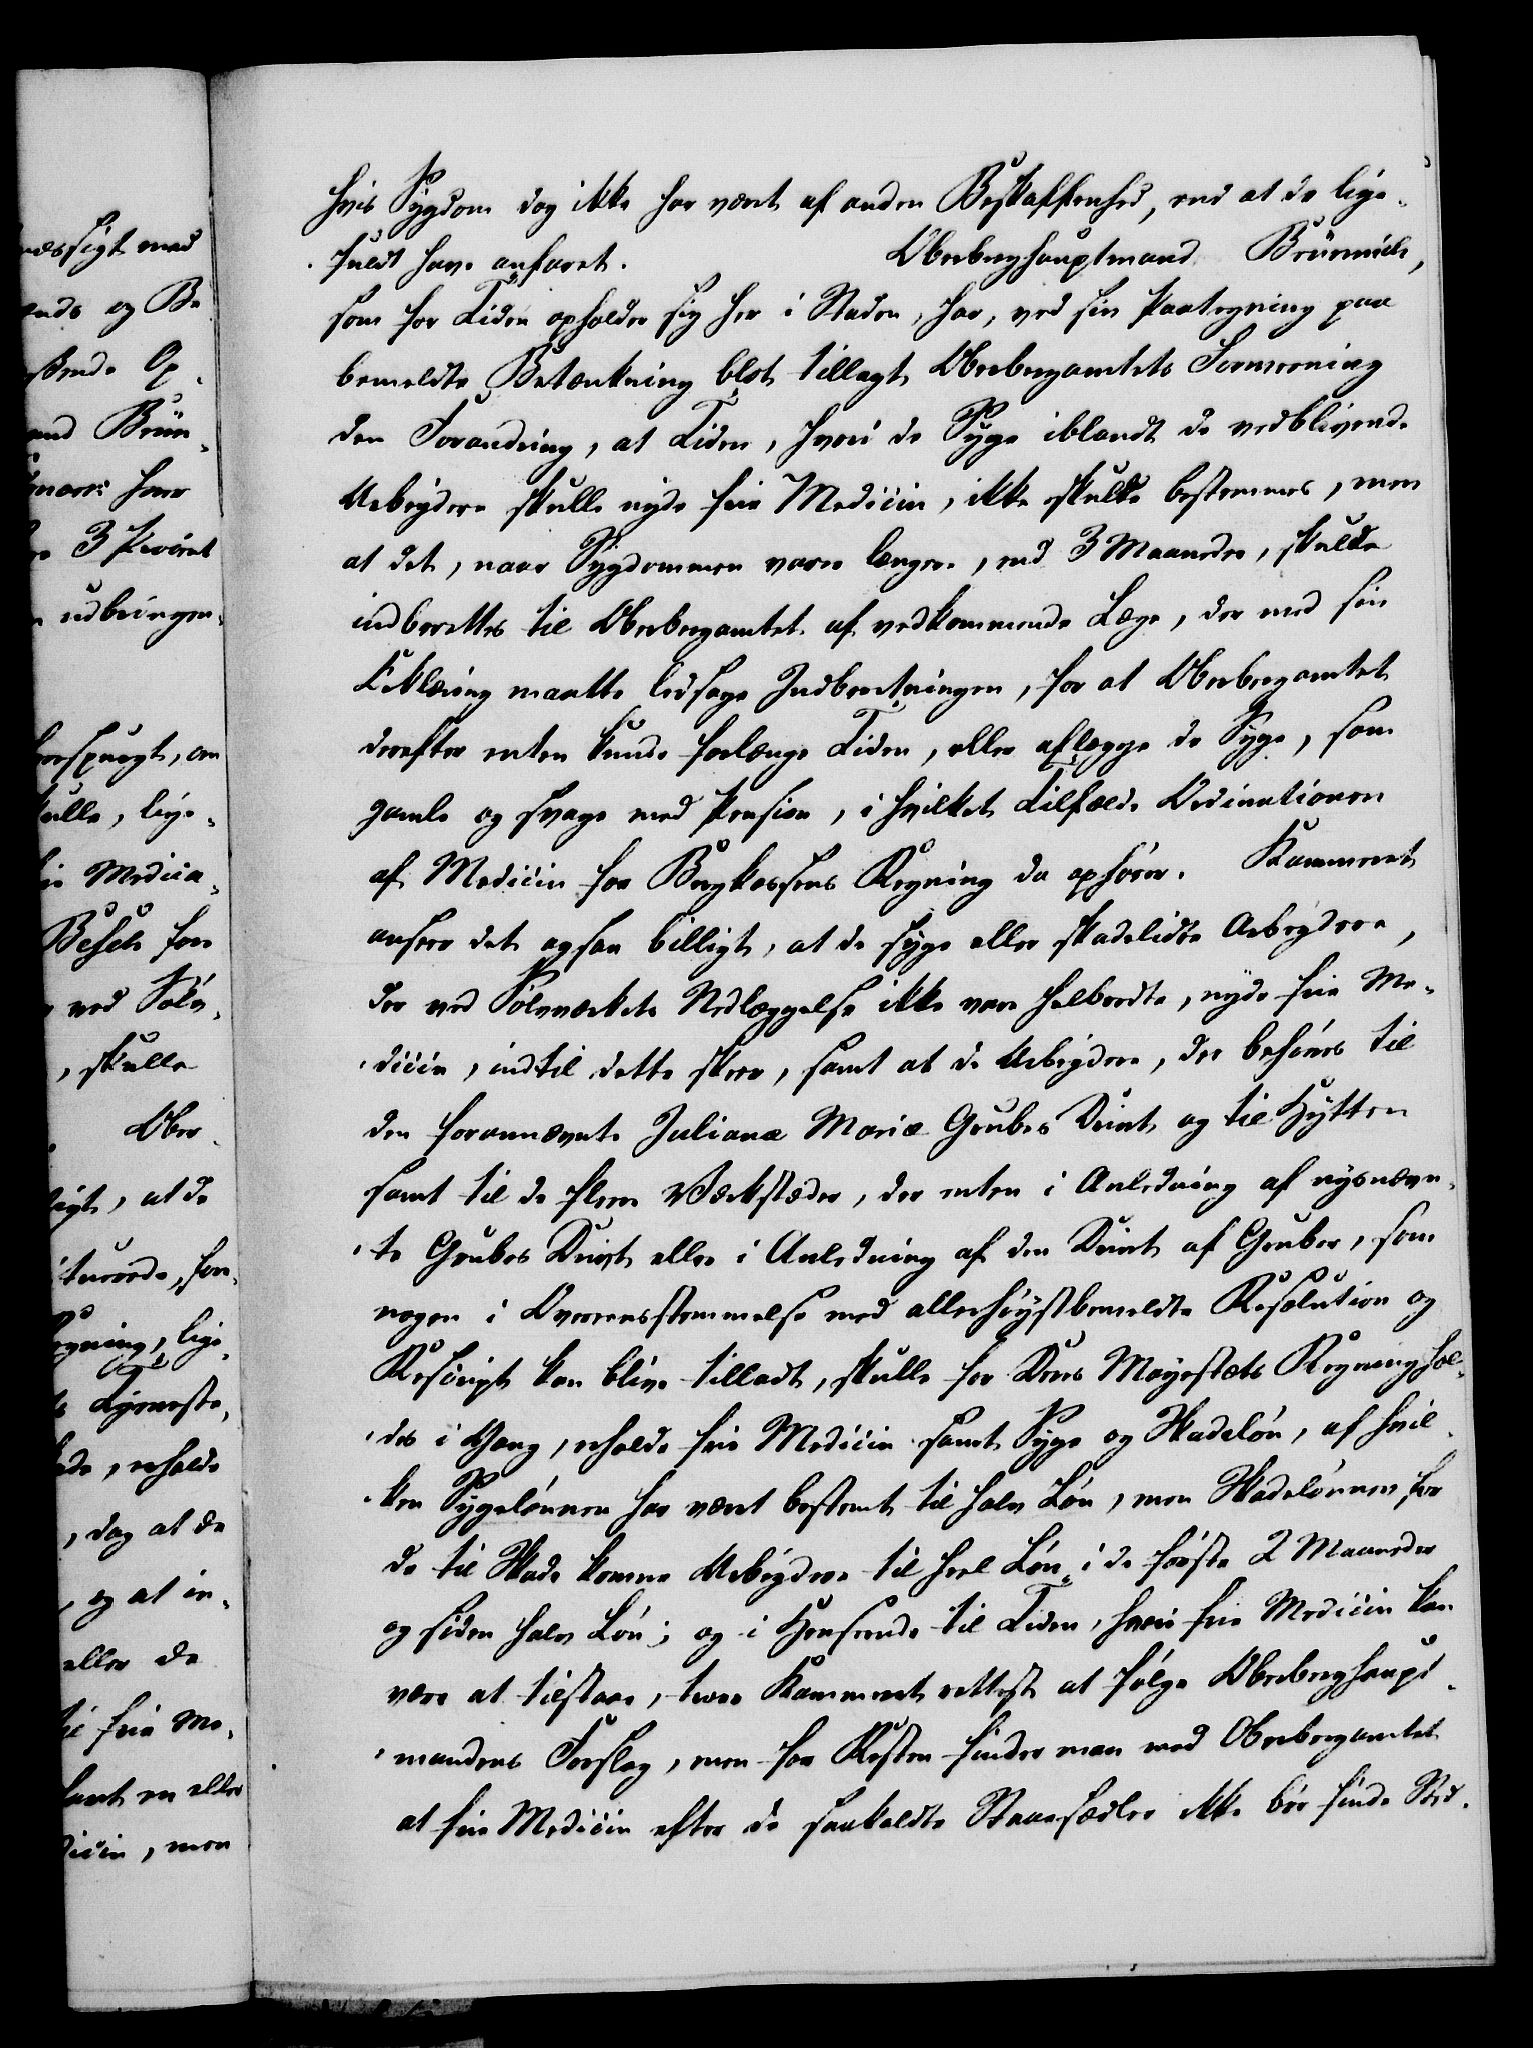 hvis Sygdom dog ikke har været af anden Beskaffenhed, end at de lige-
fuldt have anfaret. Oberberghauptmand Brünnich,
som for Tiden opholder sig her i Staden, har, ved sin Paategning paa
bemeldte Betænkning blot tillagt Oberbergamtets Formeening
den Forandring, at Tiden, hvori de Syge iblandt de vedblivende
Arbeydere skulle nyde frie Medicin, ikke skulde bestemmes, men
at det, naar Sygdommen varer længere, end 3 Maaneder, skulde
indberettes til Oberbergamtet af vedkommende Læge, der med sin
Erklæring maatte ledsage Indberetningen, for at Oberbergamtet
derefter enten kunde forlænge Tiden, eller aflægge de Syge, som
gamle og svage med Pension, i hvilket Tilfælde Ordinationen
af Medicin for Bergkassens Regning da ophører. Kammeret
anseer det ogsaa billigt, at de syge eller skadelidte Arbeydere,
der ved Sølvværkets Nedlæggelse ikke vare helbredte, nyde frie Me-
dicin, indtil dette skeer, samt at de Arbeydere, der behøves til
den forannævnte Juliane Mariæ Grubes Drivt og til Hytten
samt til de flere Værkstæder, der enten i Anledning af nysnævn-
te Grubes Drivt eller i Anledning af den Drivt af Gruber, som
nogen i Overeensstemmelse med allerhøystbemeldte Resolution og
Rescript kan blive tilladt, skulle for Deres Mayestæts Regning hol-
des i Gang, erholde frie Medicin samt Syge og Skadeløn, af hvil-
ken Sygelønnen har været bestemt til halv Løn, men Skadelønnen for
de til Skade komne Arbeydere til heel Løn i de første 2 Maaneder
og siden halv Løn; og i Henseende til Tiden, hvori frie Medicin kan
være at tilstaae, troer Kammeret rettest at følge Oberberghaupt-
mandens Forslag, men for Resten finder man med Oberbergamtet
at frie Medicin efter de saakaldte Staaesædler ikke bør finde Sted.